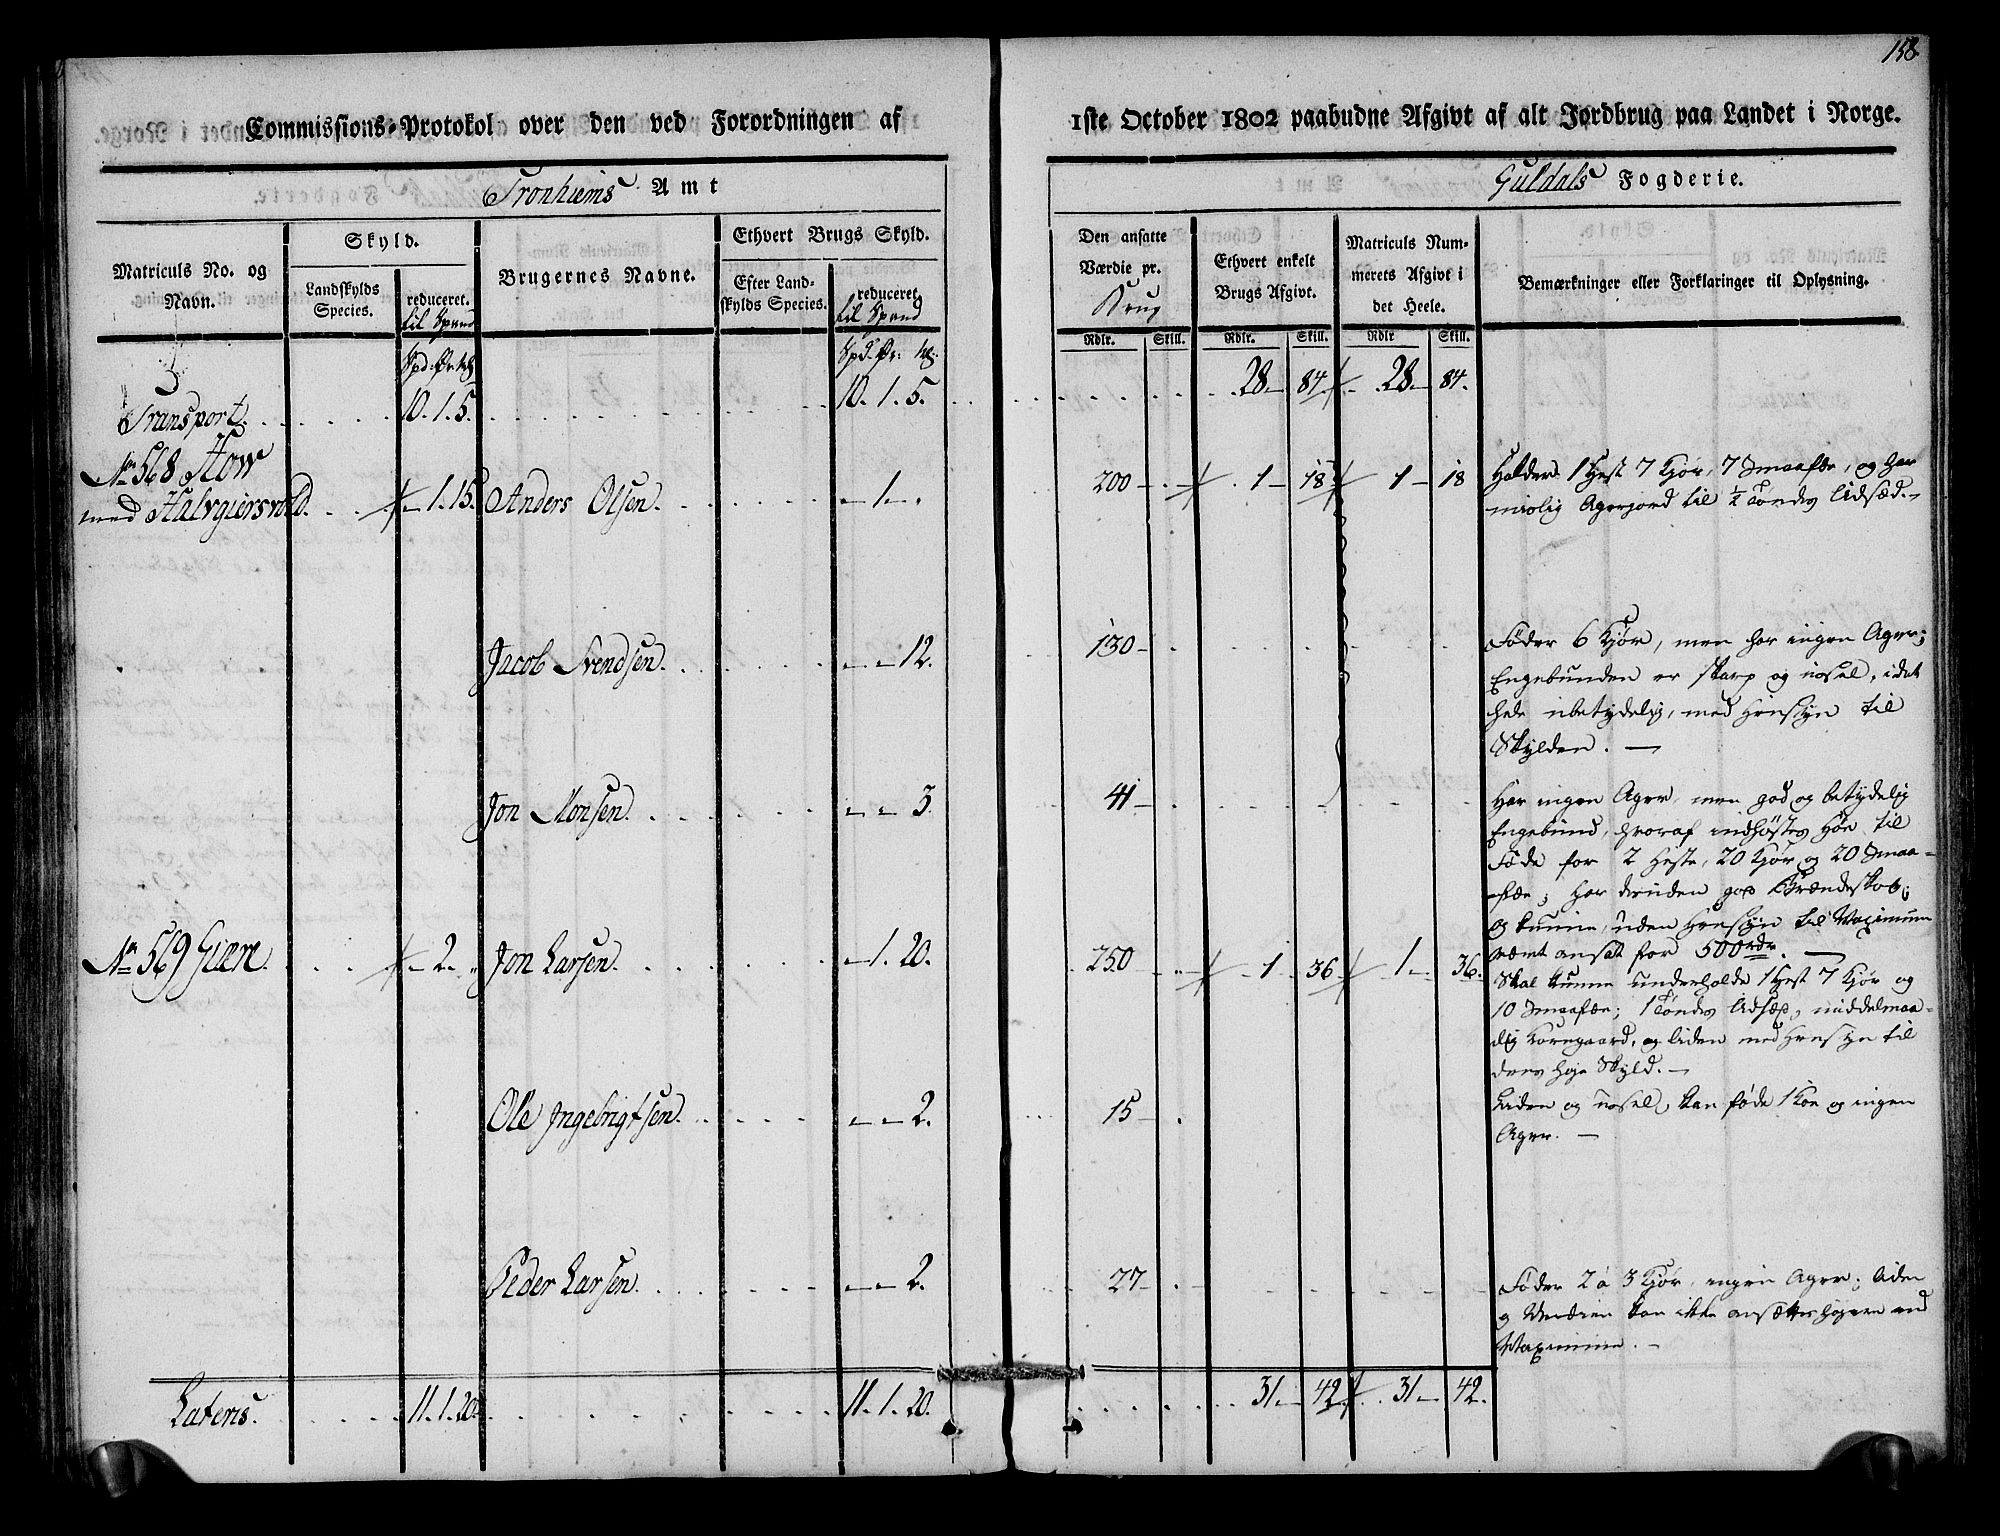 158
Commissions-Protokol over den ved Forordningen af 1ste October 1802 paabudne Afgivt af alt Jordbrug paa Landet i Norge.
Tronhiems Amt
Guldals Fogderie.
Matriculs No. og Navn.
Skyld.
Landskylds Species.
reduceret. til Spand
Brugernes Navne.
Ethvert Brugs Skyld.
Efter Landskylds Species.
reduceret til Spand
Den ansatte Værdie pr. Brug
Ethvert enkelt Brugs Afgivt.
Matriculs Nummerets Afgivt i det Heele.
Bemærkninger eller Forklaringer til Oplysning.
Rdlr. Skill. Rdlr. Skill. Rdlr Skill.
Transport. 10. 1. 5. 10. 1. 5. 28 84 28 84.
No 568 Stow
med Halvgiersvold. 1. 15. Anders Olsen. 1. 200 1 18 1 18
Holder 1 Hest 7 Kjør, 7 Smaafæ, og har
maadelig Agerjord til ½ Tøndes Udsæd.
Jacob Svendsen. 12. 130
Føder 6 Kjør, men har ingen Ager;
Engebunden er skarp og ussel, i det
hele ubetydelig, med Hensyn til
Skylden.
Jon Monsen. 3. 41
Har ingen Ager, men god og betydelig
Engebund, hvoraf indhøstes Høe til
Føde for 2 Heste, 20 Kjør og 20 Smaa-
fæe; har desuden god Brændeskov,
og kunne, uden Hensyn til Maximum
være ansat for 500 rdr.
No 569 Giære. 2. Jon Larsen. 1. 20. 250 1 36 1 36.
Skal kunne underholde 1 Hest 7 Kjør og
10 Smaafæe; 1 Tøndes Udsæd, middelmaa-
dig Korngaard, og liden med Hensyn til
dens høje Skyld.
Ole Ingebrigtsen. 2. 15
Liden og ussel, kan føde 1 Koe og ingen
Ager.
Peder Larsen. 2. 27
Føder 2 a 3 Kjør, ingen Ager; liden
og Værdien kan ikke ansættes høyere end
Maximum.
Lateris. 11. 1. 20. 11. 1. 20. 31 42 31 42.